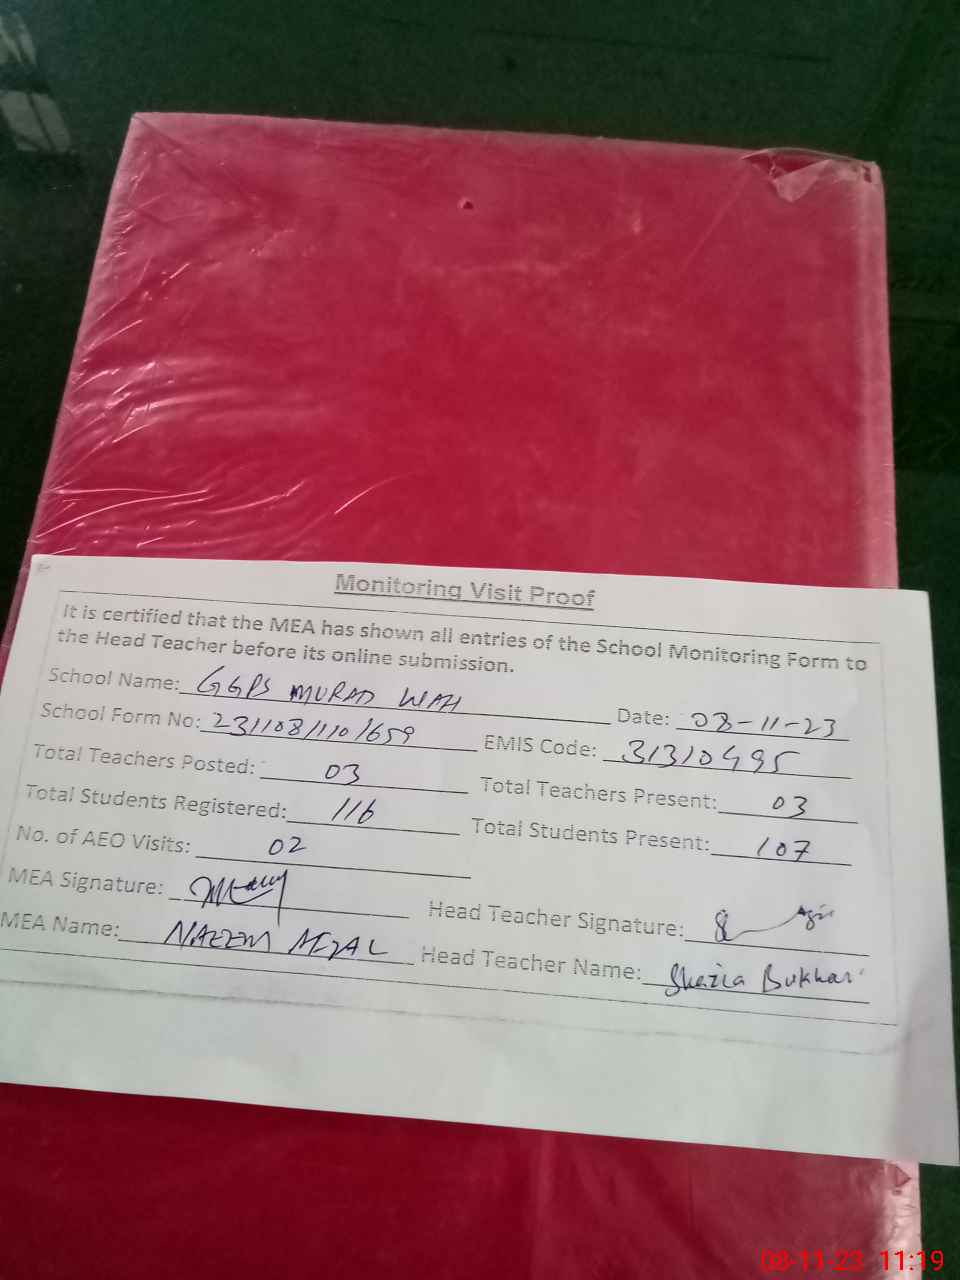 Monitoring Visit Proof
It is certified that the MEA has shown all entries of the School Monitoring Form to
the Head Teacher before its online submission.
School Name: GGPS MURAD WAH Date: 08-11-23
School Form No: 231108/110/659 EMIS Code: 31310495
Total Teachers Posted: 03 Total Teachers Present: 03
Total Students Registered: 116 Total Students Present: 107
No. of AEO Visits: 02
MEA Signature: Head Teacher Signature:
MEA Name: NAEEM AFZAL Head Teacher Name: Shazia Bukhari
08-11-23 11:19